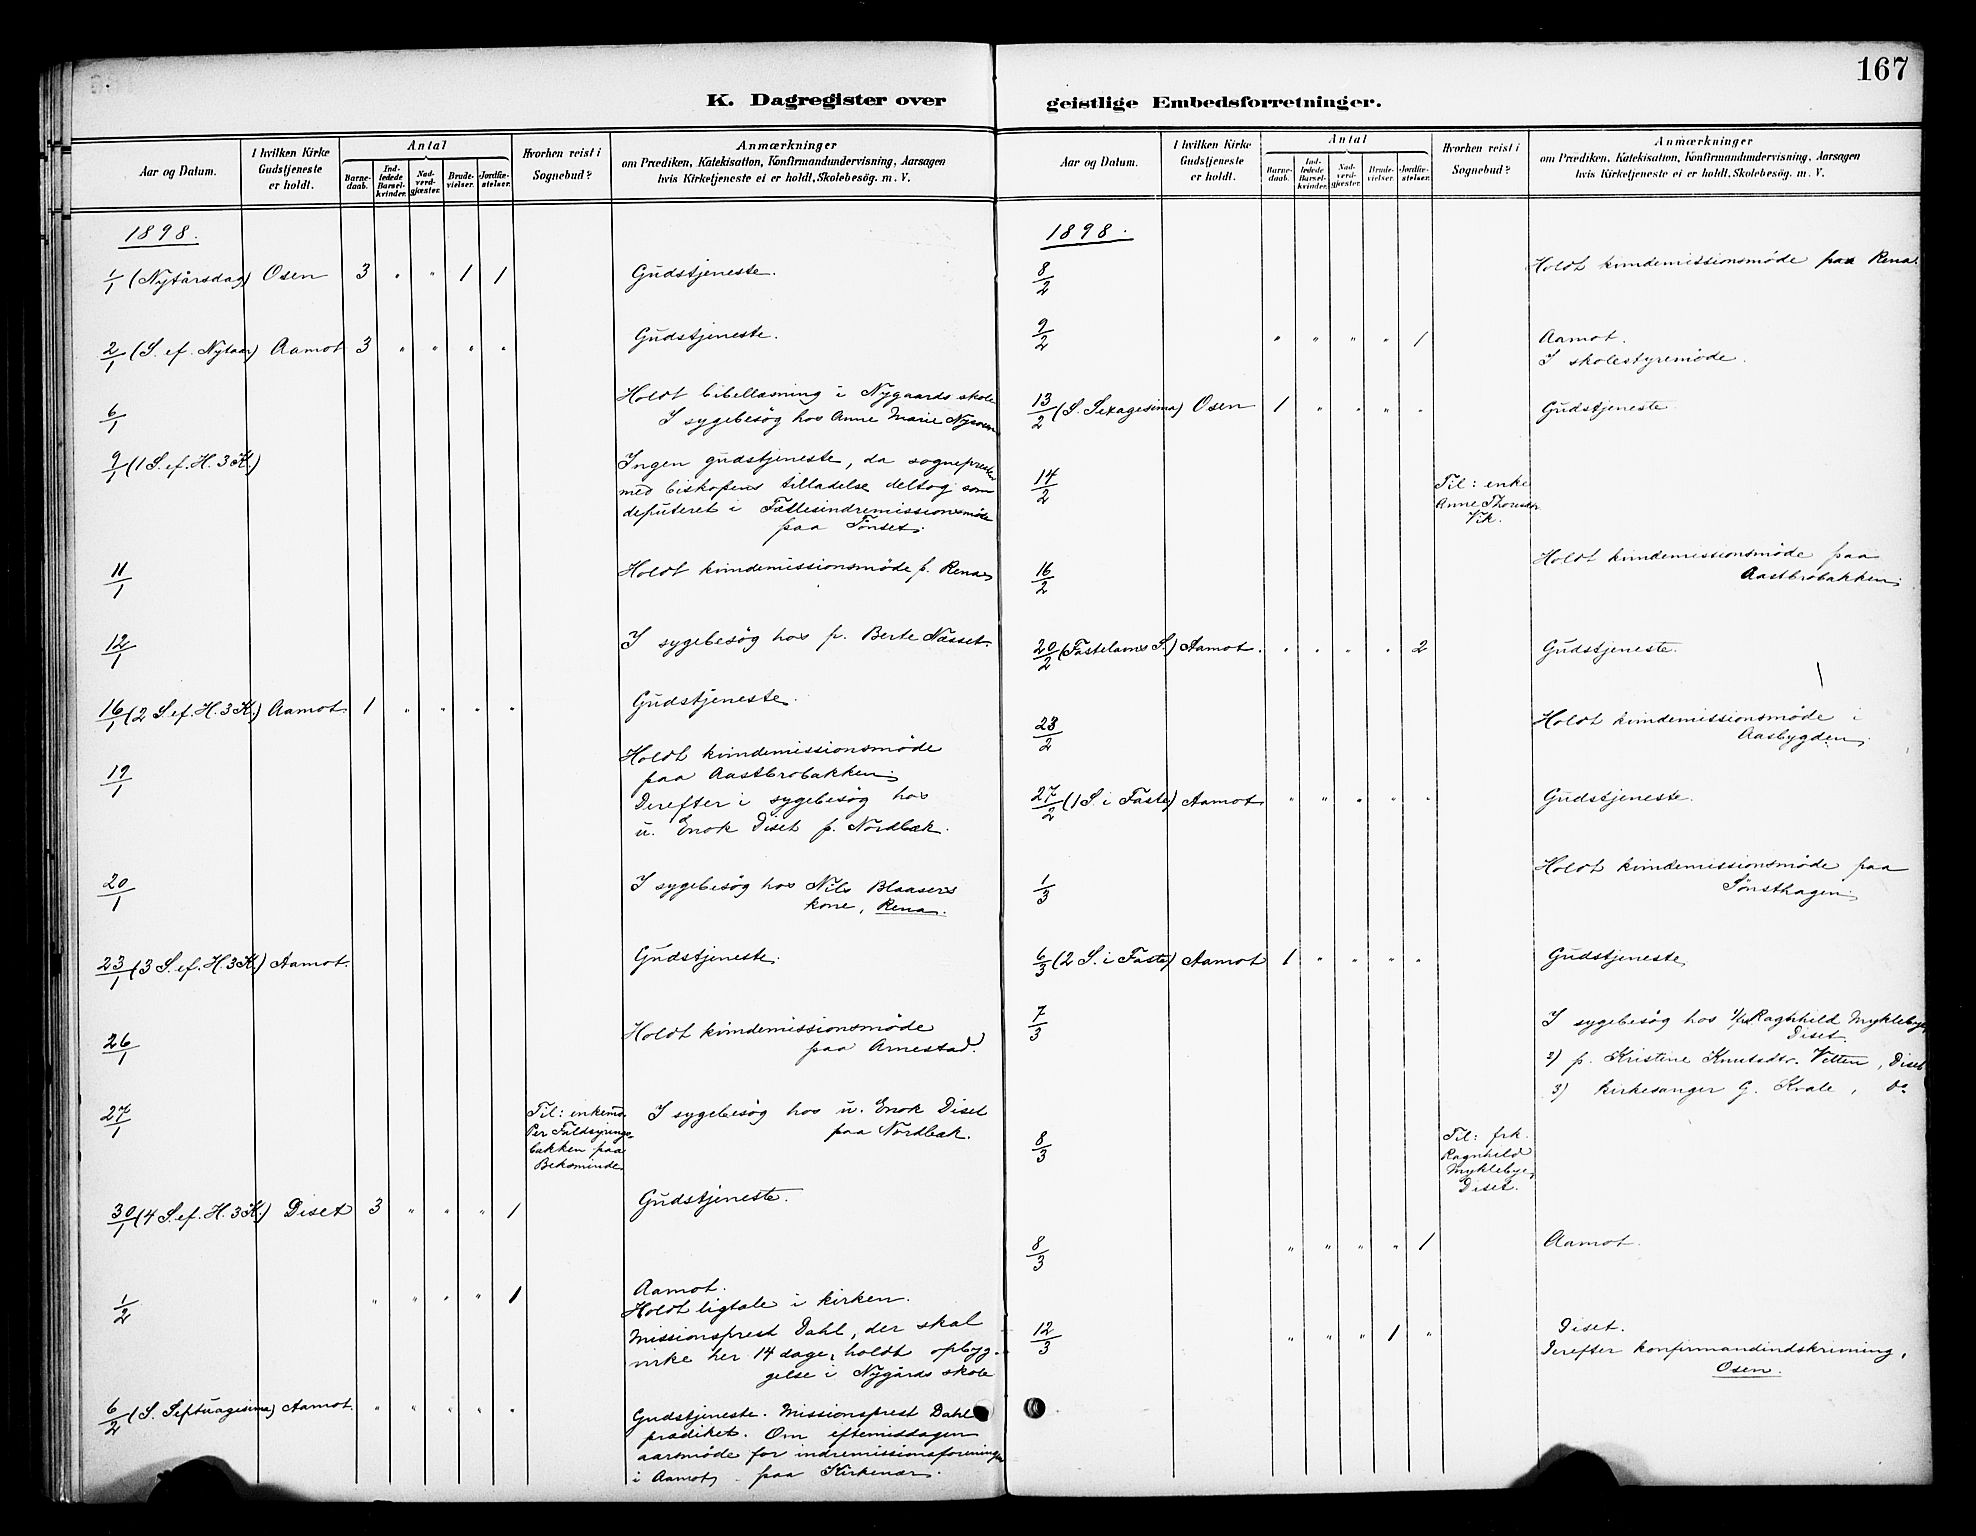 167
K. Dagregister over
geistlige Embedsforretninger.
Aar og Datum.
I hvilken Kirke Gudstjeneste er holdt.
Antal
Barnedaab.
Indledede Barselkvinder.
Nadverdgjester.
Brudevielser.
Jordfæstelser.
Hvorhen reist i Sognebud?
Anmærkninger
om Prædiken, Katekisation, Konfirmandundervisning, Aarsagen
hvis Kirketjeneste ei er holdt, Skolebesøg. m. V.
1898.
1/1 (Nytårsdag) Osen 3 " " 1 1 Gudstjeneste.
2/1 (S. ef. Nytaar) Aamot 3 " " " " Gudstjeneste.
6/1 Holdt bibellæsning i Nygaards skole
I sygebesøg hos Anne Marie
9/1 (1 S. ef. H. 3 K.) Ingen gudstjeneste, da sognepresten
med biskopens tilladelse deltog som
deputeret i Fællesindremissionsmøde
paa Tønset.
11/1 Holdt kvindemissionsmøde p. Rena
12/1 I sygebesøg hos p. Berte Næsset.
16/1 (2 S. ef. H. 3 K.) Aamot. 1 " " " " Gudstjeneste.
19/1 Holdt kvindemissionsmøde
paa Aastbrobakken.
Derefter i sygebesøg hos
u. Enok Diset p. Nordbæk.
20/1 I sygebesøg hos Nils Blaasers
kone, Rena.
23/1 (3 S. ef. H. 3 K.) Aamot. Gudstjeneste.
26/1 Holdt kvindemissionsmøde
paa Arnestad.
27/1 Til: enkem. I sygebesøg hos u. Enok Diset
Per paa Nordbæk.
bakken paa
30/1 (4 S. ef. H. 3 K.) Diset 3 " " " 1 Gudstjeneste.
1/2 " " " " 1 Aamot.
Holdt ligtale i kirken.
Missionsprest Dahl, der skal
virke her 14 dage, holdt opbyg-
gelse i Nygårds skole
6/2 (S. Septuagesima) Aamot. " " " " " Gudstjeneste. Missionsprest Dahl
prædiket. Om eftemiddagen
aarsmøde for indremissionsforeningen
i Aamot, paa Kirkenær.
Aar og Datum.
I hvilken Kirke Gudstjeneste er holdt.
Antal
Barnedaab.
Indledede Barselkvinder.
Nadverdgjester.
Brudevielser.
Jordfæstelser.
Hvorhen reist i Sognebud?
Anmærkninger
om Prædiken, Katekisation, Konfirmandundervisning, Aarsagen
hvis Kirketjeneste ei er holdt, Skolebesøg. m. V.
1898.
8/2 Holdt kvindemissionsmøde paa Rena.
9/2 " " " " 1 Aamot.
I skolestyremøde.
13/2 (S. Sexagesima) Osen 1 " " " " Gudstjeneste.
14/2 Til: enke
Anne Thorsdtr
Vik.
16/2 Holdt kvindemissionsmøde paa
Aastbrobakken.
20/2 (Fastelavns S.) Aamot. " " " " 2 Gudstjeneste.
23/2 Holdt kvindemissionsmøde i
Aasbygden.
27/2 (1 S. i Faste) Aamot " " " " " Gudstjeneste.
1/3 Holdt kvindemissionsmøde paa
Sønsthagen.
6/3 (2 S. i Faste) Aamot 1 " " " " Gudstjeneste
7/3 I sygebesøg hos 1/ Ragnhild Myklebye
Diset.
2) p. Kristine Knutsdtr. Vetten, Diset
3) Kirkesanger G. Kvale, do
8/3 Til: frk.
Ragnhild
Myklebye,
Diset.
8/3 " " " " 1 Aamot.
12/3 " " " 1 " Diset.
Derefter konfirmandindskrivning,
Osen.